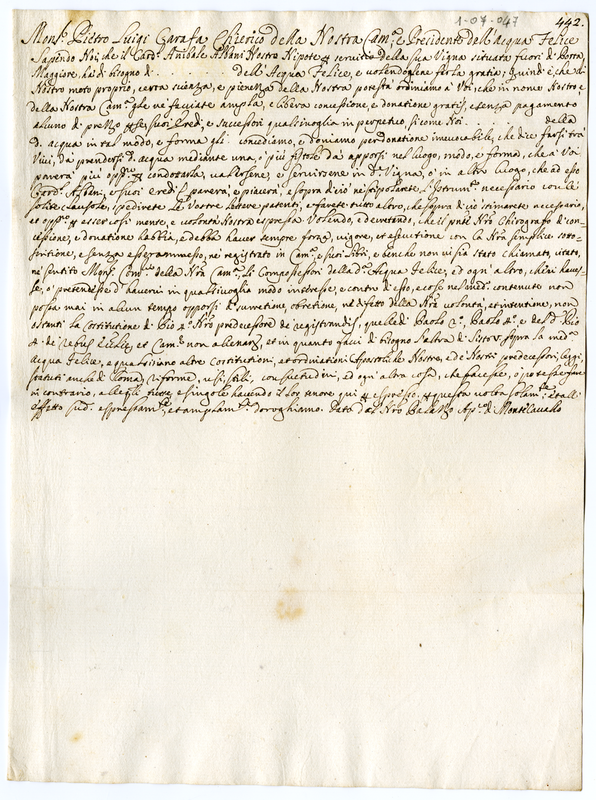 1-07-047 442.
Mons.r Pietro Luigi Carafa Chierico della Nostra Cam.a e Presidente dell'Acqua Felice
Sapendo Noi, che il Card. Anibale Albani Nostro Nipote p servitio della sua Vigna situata fuori di Porta
Maggiore, hà di bisogno di . . . . . . dell'Acqua Felice, e volendogliene far la gratia; Quindi è, che di
Nostro moto proprio, certa scienza, e pienezza della Nostra potestà ordiniamo à Voi, che in nome Nostro e
della Nostra Cam.a gle ne facciate ampla, e libera concessione, e donatione gratis, e senza pagamento
alcuno di prezzo p se, suoi Eredi, e successori qualsivoglia in perpetuo si come Noi . . . . . . della
d. acqua in tal modo, e forma gli concediamo, e doniamo per donatione irrevocabile, che dice farsi trà
Vivi, da prendersi d. acqua mediante una, ò più fistole da apporsi nel luogo, modo, e forma, che à Voi
parerà più opp.no p condottarla, valersene, e servirsene in d.a Vigna, ò in altro luogo, che ad esso
Card. Albani, e suoi eredi parerà, e piacerà, e sopra di ciò ne stipolarete l'Istrum.to necessario con le
solite clausole, e spedirete le Vostre lettere patenti, e farete tutto altro, che sopra di ciò stimarete necessario,
et opp.no p esser così mente, e volontà Nostra espressa. Volendo, e decretando, che il pnte Nro Chirografo di con-
cessione, e donatione habbia, e debba haver sempre forza, vigore, et essecutione con la Nra semplice sotto-
scrittione, e senza esser ammesso, nè registrato in Cam.a e suoi libri, e benche non vi sia stato chiamato, citato,
nè sentito Mons.r Com.rio della Nra Cam.a li Compossessori della d.a Acqua Felice, ed ogn'altro, che vi haves-
se, ò pretendesse d'havervi in qualsivoglia modo interesse, e contro di esso, e cose nel med.o contenute non
possa mai in alcun tempo opporsi di surretione, obretione, nè difetto della Nra volontà, et intentione, non
ostanti la Costitutione di Pio 4.o Nro predecessore de registrandis, quelle di Paolo 2.o, Paolo 4.o e de d. Pio
4.o de rebus Eccl.e, et Cam.a non alienand., et in quanto facci di bisogno l'altra di Sisto V. sopra la med.a
Acqua Felice, e qualsisiano altre Costitutioni, et ordinationi Apostoliche Nostre, e de Nostri predecessori, leggi,
statuti anche di Roma, riforme, usi, stili, consuetudini, ed ogni altra cosa, che facesse, ò potesse fare
in contrario, alle quali tutte, e singole havendo il loro tenore qui p espresso p questa volta solam.te, et all'
effetto sud. espressam.te, et ampiam.te deroghiamo. Dato dal Nro Palazzo Ap.co di Monte Cavallo